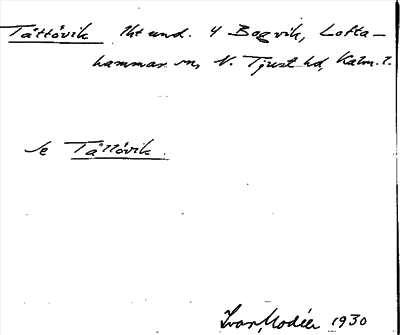 Tåttövik lht und. 4 Bogvik, Lofta-
hammar sn, N. Tjust hd, Kalm. l.
Se Tåttövik.
Ivar Modéer 1930